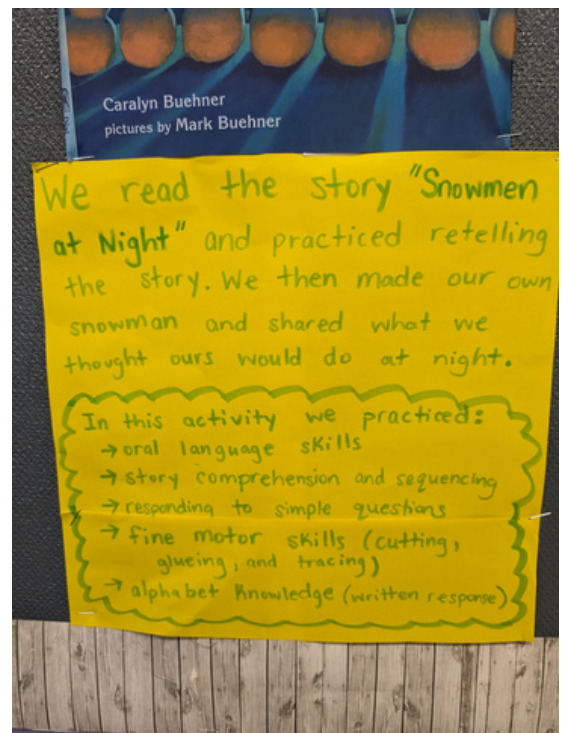 Caralyn Buehner
pictures by Mark Buehner
We read the story "Snowmen
at Night" and practiced retelling
the story. We then made our own
snowman and shared what we
thought ours would do at night.
In this activity we practiced:
→ oral language skills
→ story comprehension and sequencing
→ responding to simple questions
→ fine motor skills (cutting,
glueing, and tracing)
→ alphabet knowledge (written response)